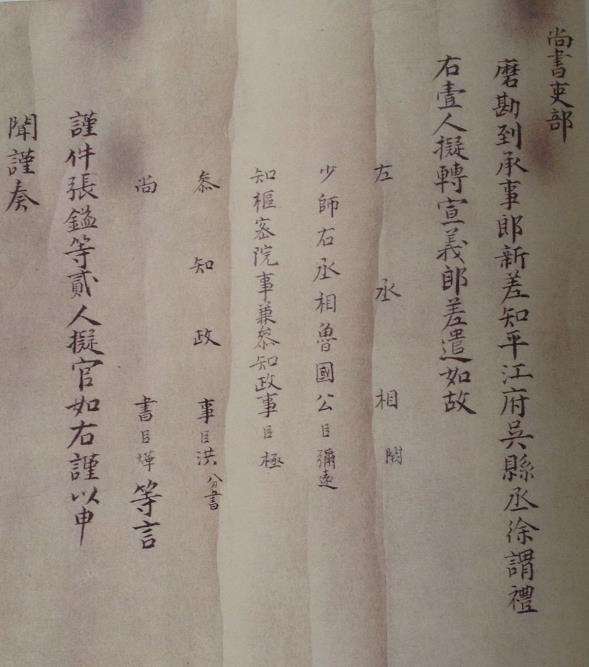 尚書吏部
磨勘到承事郎新差知平江府吳縣丞徐謂禮
右壹人擬轉宣義郎差遣如故
左丞相闕
少師右丞相魯國公臣彌遠
知樞密院事兼叅知政事臣極
叅知政事臣洪分書
尚書臣燁等言
謹件張鎰等貳人擬官如右謹以申
聞謹奏